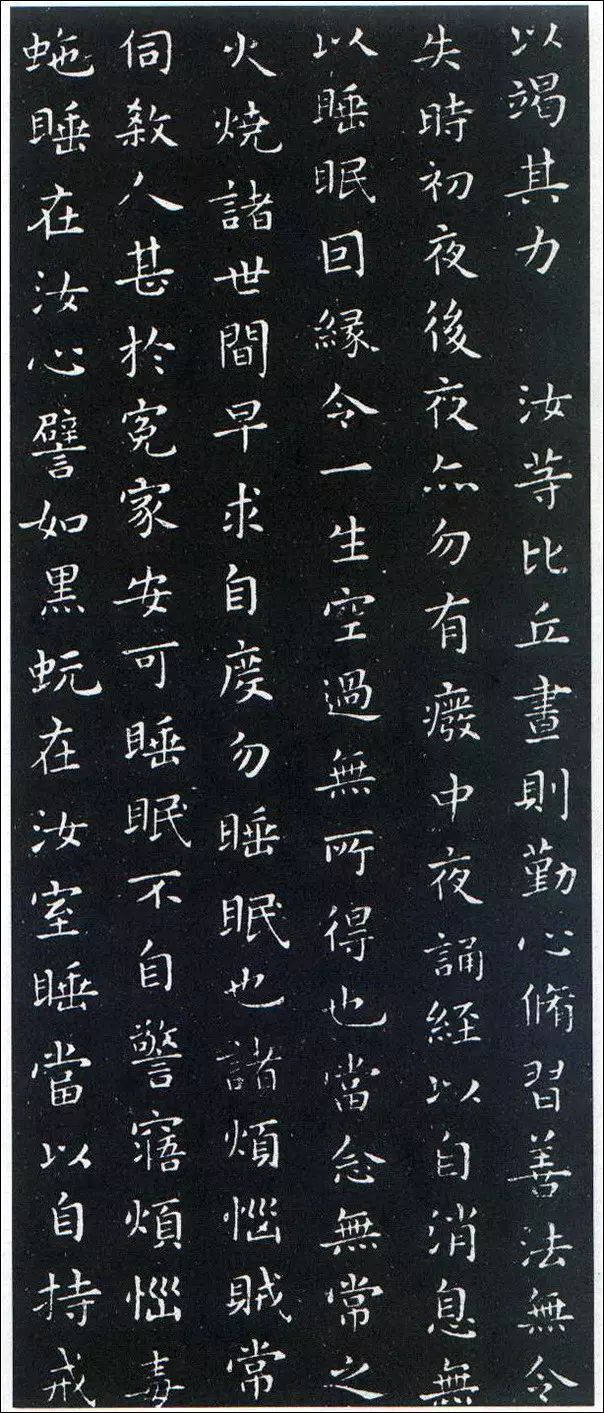 以竭其力　汝等比丘晝則勤心脩習善法無令
失時初夜後夜亦勿有癈中夜誦経以自消息無
以睡眠回縁令一生空過無所得也當念無常之
火燒諸世間早求自度勿睡眠也諸煩惱賊常
伺殺人甚於寃家安可睡眠不自警寤煩惱毒
虵睡在汝心譬如黒蚖在汝室睡當以自持戒